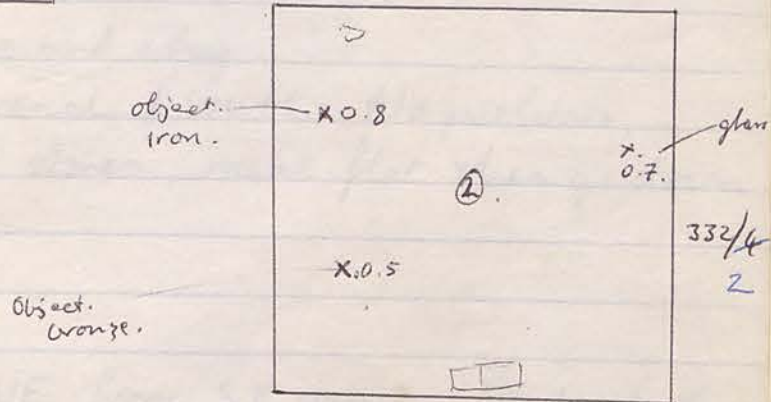 object.
iron.
x 0.8
glass
x.
0.7.
②.
332/4
2
x.0.5
Object.
bronze.